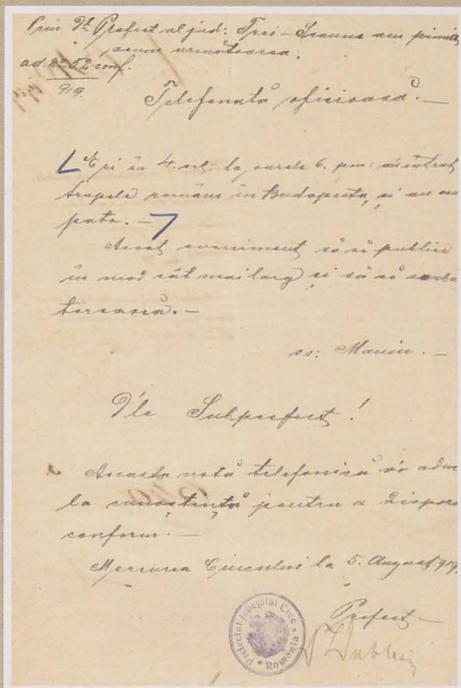 Prin Dl. Prefect al jud: Trei-Scaune am primit
acum urmatoarea.
ad. № 52 conf.
919.
Telefonată oficioasă.—
Eri în 4. crt. la oarele 6. pm: au intrat
trupele române în Budapesta, și au ocu
pato.—
Acest eveniment să să publice
în mod cât mai larg și să să serbă
torească.—
ss: Maniu.—
D'le Subprefect!
Această notă telefonică v'o aduc
la cunoștență pentru a dispoza
conform.—
Mercurea Ciucului la 5. August 919.
Prefect
Prefectul Județului Ciuc
România